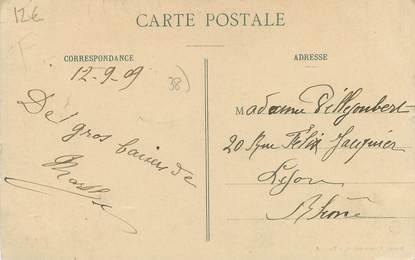 12€
CARTE POSTALE
CORRESPONDANCE
ADRESSE
12-9-09
38)
De gros baisers de
Madame
20 Rue Félix Jacquier
Lyon
Rhône